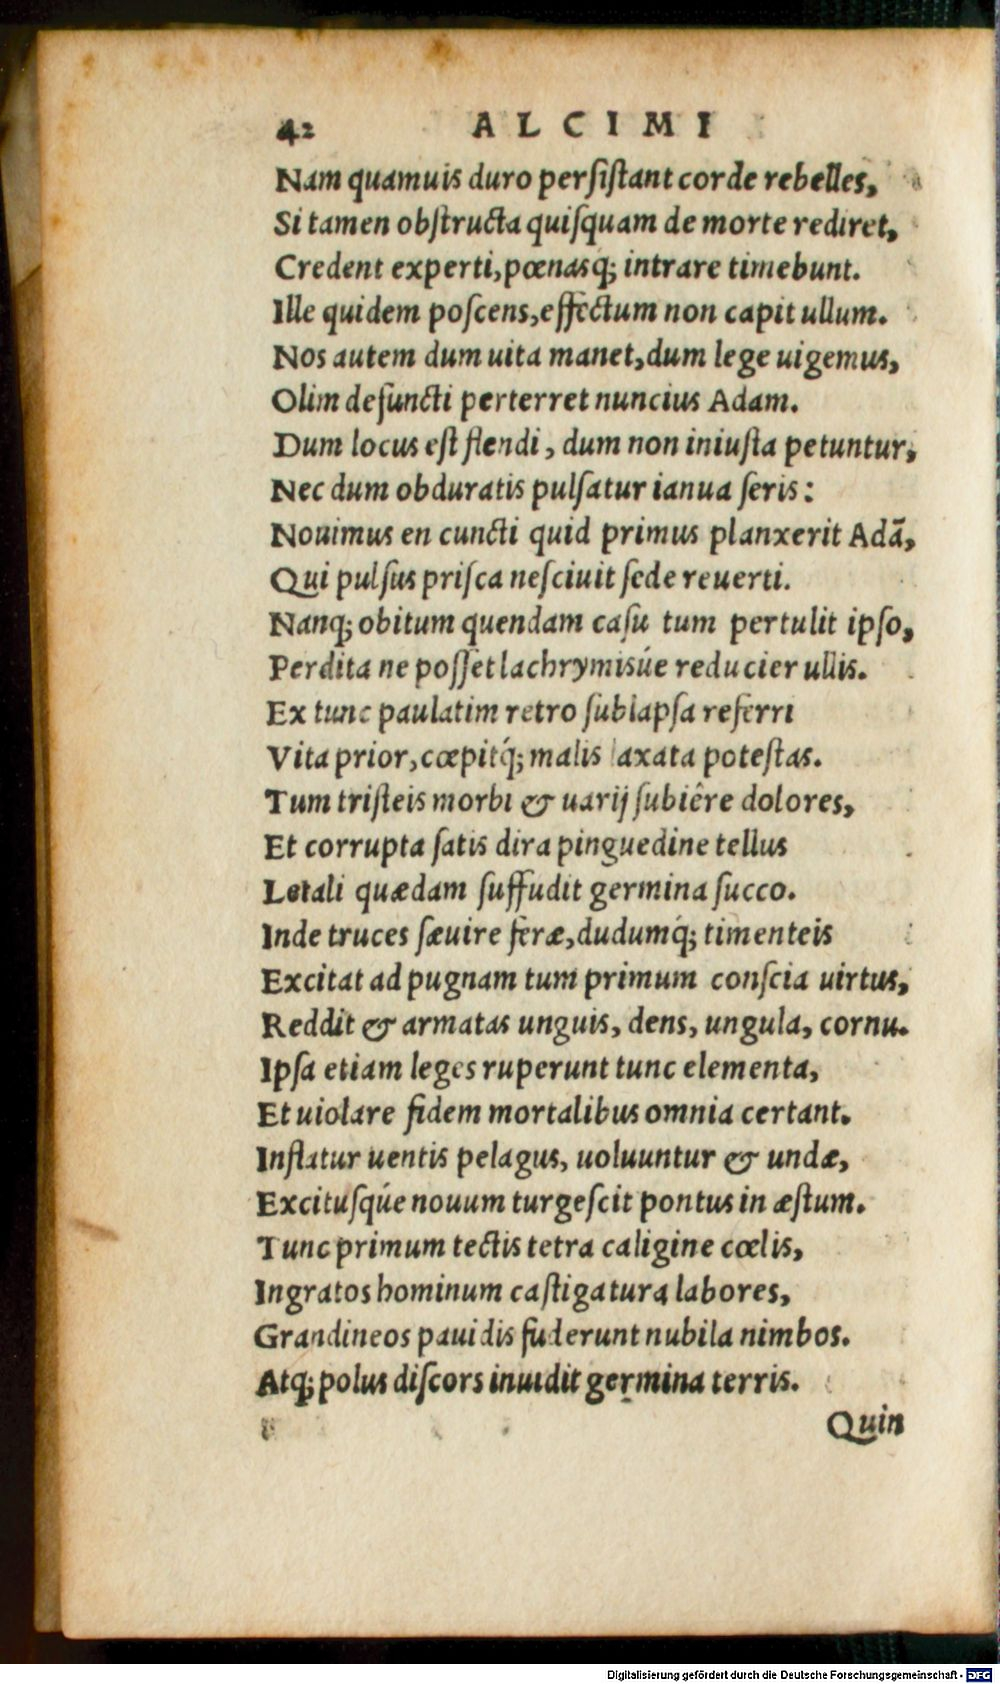 42 ALCIMI
Nam quamuis duro perſiſtant corde rebelles,
Si tamen obſtructa quiſquam de morte rediret,
Credent experti, pœnasq; intrare timebunt.
Ille quidem poſcens, effectum non capit ullum.
Nos autem dum uita manet, dum lege uigemus,
Olim defuncti perterret nuncius Adam.
Dum locus eſt flendi, dum non iniuſta petuntur,
Nec dum obduratis pulſatur ianua ſeris:
Nouimus en cuncti quid primus planxerit Adã,
Qui pulſus priſca neſciuit ſede reuerti.
Nanq; obitum quendam caſu tum pertulit ipſo,
Perdita ne poſſet lachrymisúe reducier ullis.
Ex tunc paulatim retro ſublapſa referri
Vita prior, cœpitq́; malis laxata poteſtas.
Tum triſteis morbi & uarij ſubiêre dolores,
Et corrupta ſatis dira pinguedine tellus
Letali quædam ſuffudit germina ſucco.
Inde truces ſæuire feræ, dudumq́; timenteis
Excitat ad pugnam tum primum conſcia uirtus,
Reddit & armatas unguis, dens, ungula, cornu.
Ipſa etiam leges ruperunt tunc elementa,
Et uiolare fidem mortalibus omnia certant.
Inflatur uentis pelagus, uoluuntur & undæ,
Excituſqúe nouum turgeſcit pontus in æſtum.
Tunc primum tectis tetra caligine cœlis,
Ingratos hominum caſtigatura labores,
Grandineos pauidis fuderunt nubila nimbos.
Atq; polus diſcors inuidit germina terris.
Quin
Digitalisierung gefördert durch die Deutsche Forschungsgemeinschaft - DFG